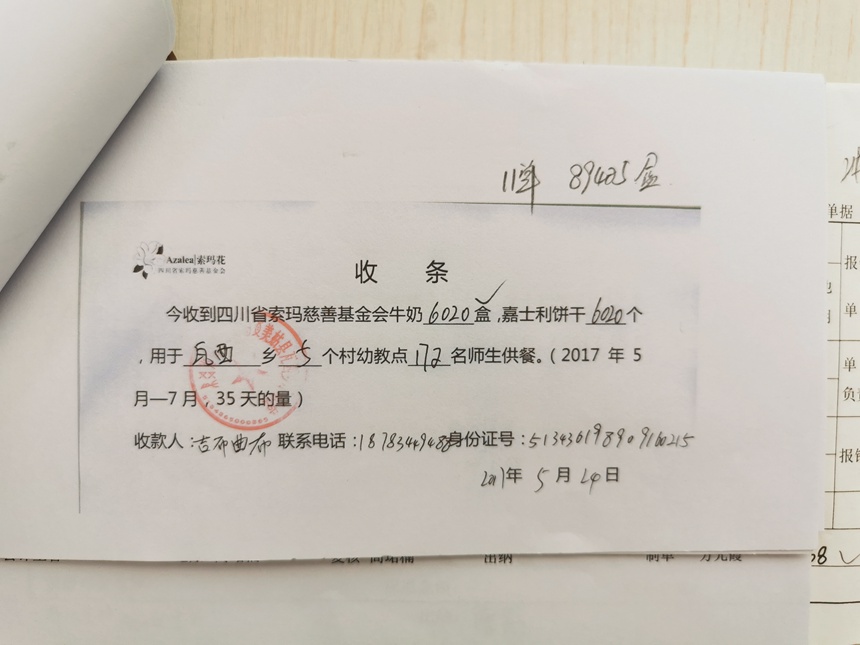 11单 89405盒
Azalea|索玛花
四川省索玛慈善基金会
收 条
今收到四川省索玛慈善基金会牛奶6020盒,嘉士利饼干6020个
,用于瓦西乡5个村幼教点172名师生供餐。(2017 年 5
月—7月,35天的量)
收款人:吉布曲布 联系电话:18783449488身份证号:513436198909160215
2017年 5 月 24日
单据
报
单
单
负责
报销
复核
出纳
制单